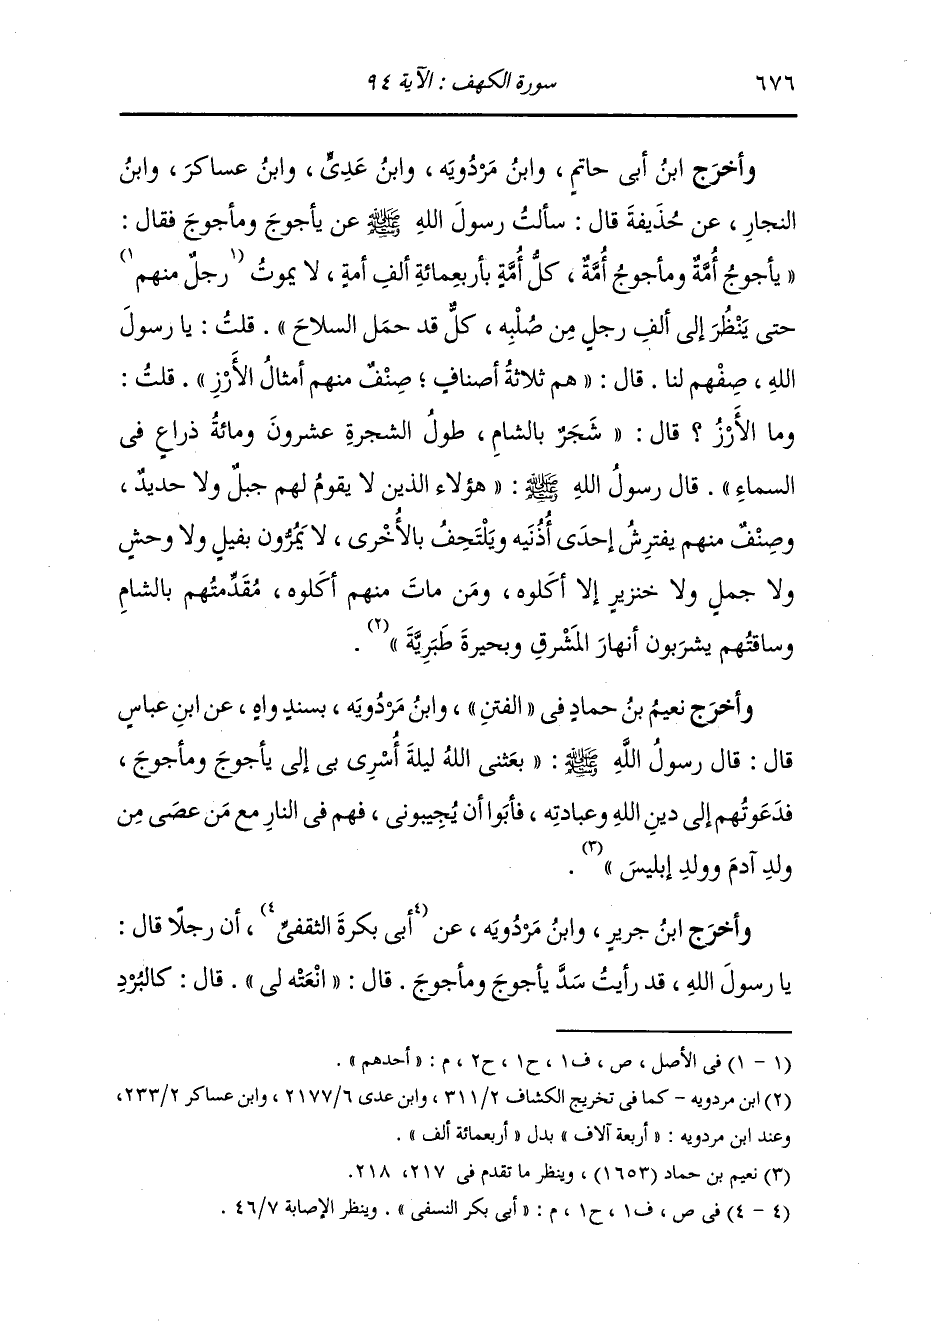 ٦٧٦
سورة الكهف : الآية ٩٤
وأخرَج ابنُ أبى حاتمٍ ، وابنُ مَرْدُويَه ، وابنُ عَدِىٍّ ، وابنُ عساكرَ ، وابنُ
النجارِ ، عن حُذَيفةَ قال : سألتُ رسولَ اللهِ ﷺ عن يأجوجَ ومأجوجَ فقال :
« يأجوجُ أُمَّةٌ ومأجوجُ أُمَّةٌ ، كلُّ أُمَّةٍ بأربعِمائةِ ألفِ أمةٍ ، لا يموتُ (١رجلٌ منهم١)
حتى يَنْظُرَ إلى ألفِ رجلٍ مِن صُلْبِه ، كلٌّ قد حمَل السلاحَ » . قلتُ : يا رسولَ
اللهِ ، صِفْهم لنا . قال : « هم ثلاثةُ أصنافٍ ؛ صِنْفٌ منهم أمثالُ الأَرْزِ » . قلتُ :
وما الأَرْزُ ؟ قال : « شَجَرٌ بالشامِ ، طولُ الشجرةِ عشرونَ ومائةُ ذراعٍ فى
السماءِ » . قال رسولُ اللهِ ﷺ : « هؤلاء الذين لا يقومُ لهم جبلٌ ولا حديدٌ ،
وصِنْفٌ منهم يفترِشُ إحدَى أُذُنَيه ويَلْتَحِفُ بالأُخْرى ، لا يَمُرُّون بفيلٍ ولا وحشٍ
ولا جملٍ ولا خنزيرٍ إلا أكَلوه ، ومَن ماتَ منهم أكَلوه ، مُقَدِّمتُهم بالشامِ
وساقتُهم يشرَبون أنهارَ المَشْرقِ وبحيرةَ طَبَرِيَّةَ »(٢) .
وأخرَج نعيمُ بنُ حمادٍ فى « الفتنِ » ، وابنُ مَرْدُويَه ، بسندٍ واهٍ ، عن ابنِ عباسٍ
قال : قال رسولُ اللَّهِ ﷺ : « بعَثنى اللهُ ليلةَ أُسْرِى بى إلى يأجوجَ ومأجوجَ ،
فدَعَوتُهم إلى دينِ اللهِ وعبادتِه ، فأبَوا أن يُجِيبونى ، فهم فى النارِ مع مَن عصَى مِن
ولدِ آدمَ وولدِ إبليسَ »(٣) .
وأخرَج ابنُ جريرٍ ، وابنُ مَرْدُويَه ، عن (٤أبى بكرةَ الثقفىِّ٤) ، أن رجلًا قال :
يا رسولَ اللهِ ، قد رأيتُ سَدَّ يأجوجَ ومأجوجَ . قال : « انْعَتْه لى » . قال : كالبُرْدِ
(١ - ١) فى الأصل ، ص ، ف١ ، ح١ ، ح٢ ، م : « أحدهم » .
(٢) ابن مردويه - كما فى تخريج الكشاف ٣١١/٢ ، وابن عدى ٢١٧٧/٦ ، وابن عساكر ٢٣٣/٢ ،
وعند ابن مردويه : « أربعة آلاف » بدل « أربعمائة ألف » .
(٣) نعيم بن حماد (١٦٥٣) ، وينظر ما تقدم فى ٢١٧، ٢١٨.
(٤ - ٤) فى ص ، ف١ ، ح١ ، م : « أبى بكر النسفى » . وينظر الإصابة ٤٦/٧ .